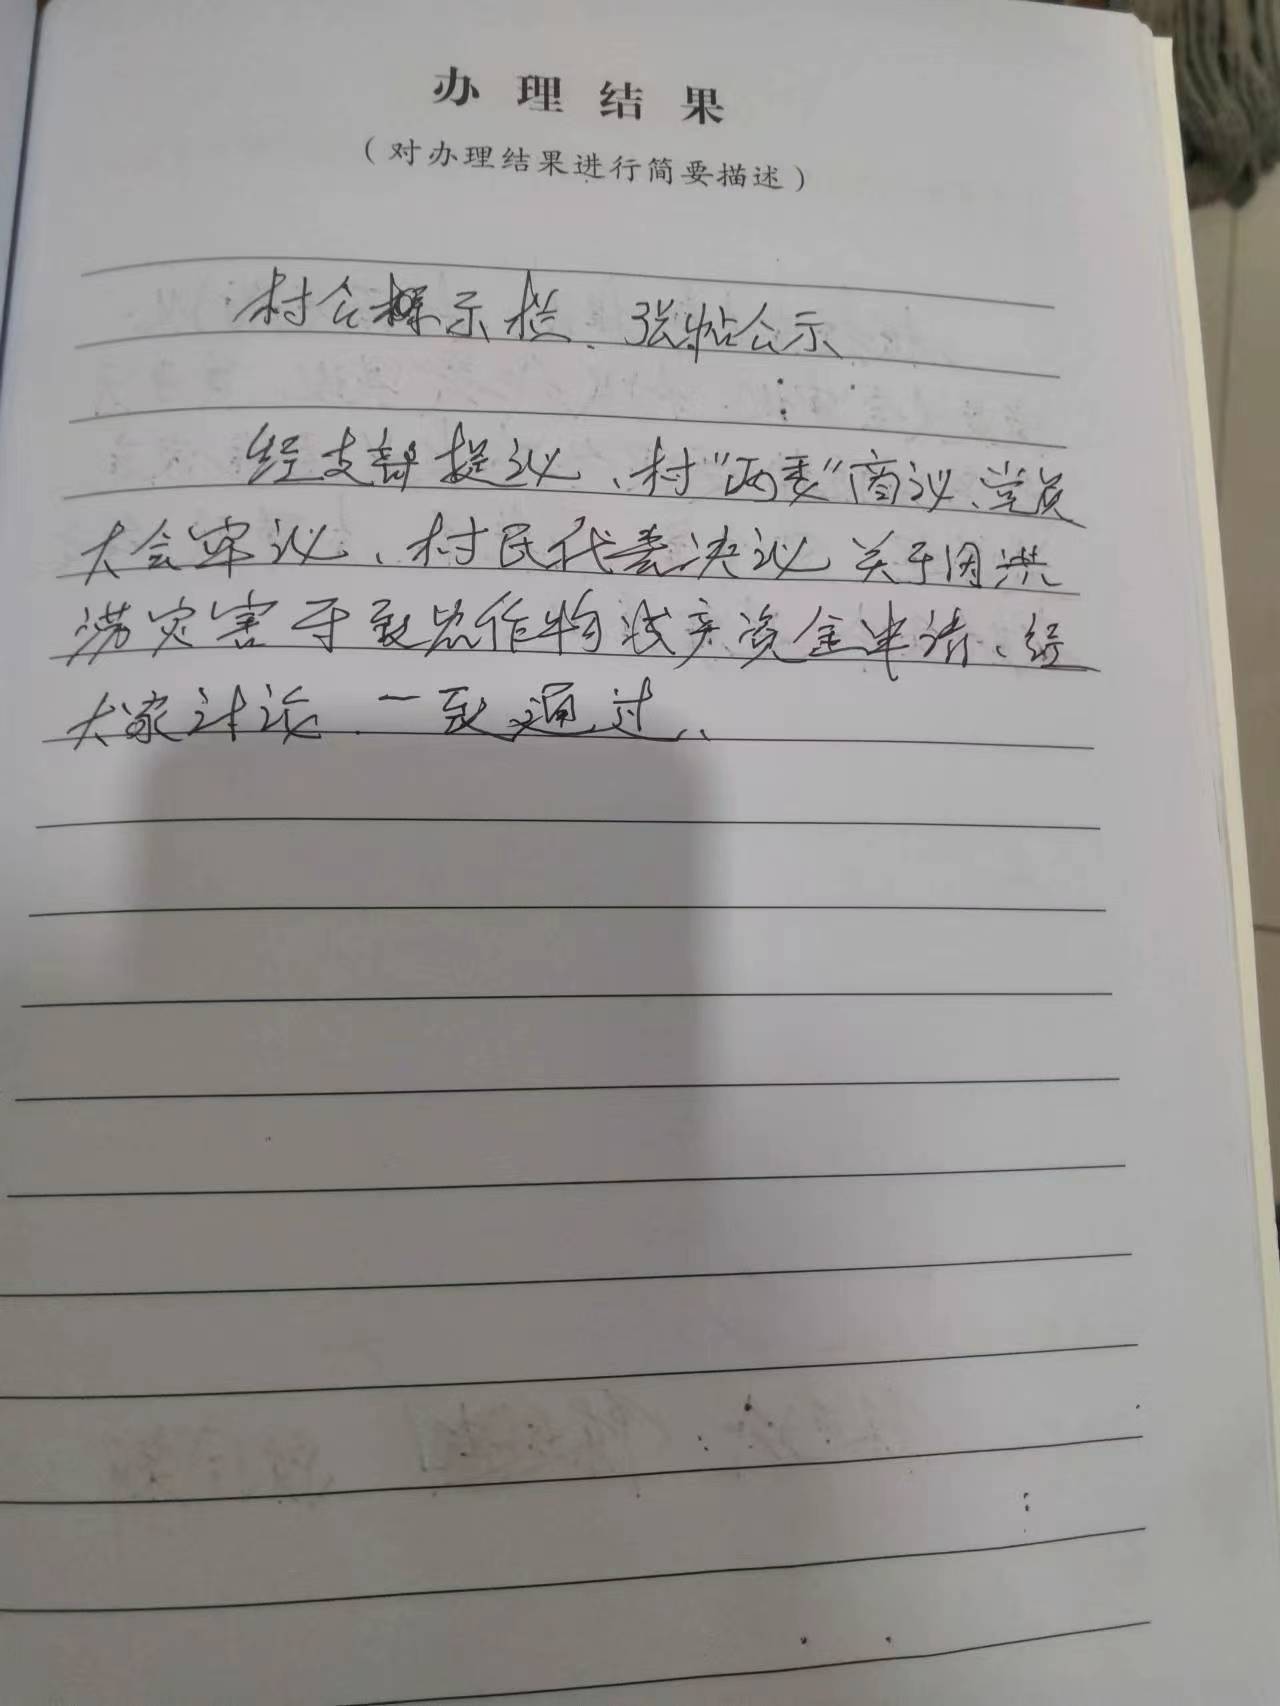 办理结果
(对办理结果进行简要描述)
村公示栏、张帖公示
经支部提议、村"两委"商议、党员
大会审议、村民代表决议关于因洪
涝灾害于致农作物减产资金申请、经
大家讨论一致通过、